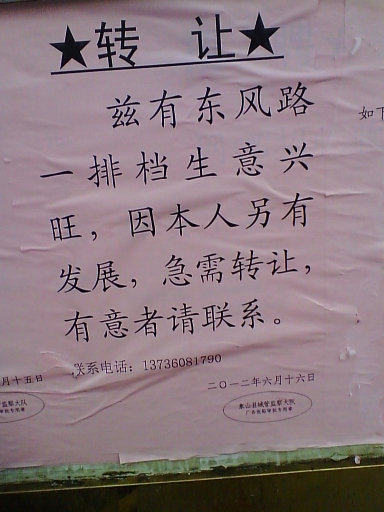 ★转 让★
兹有东风路
一排档生意兴
旺，因本人另有
发展，急需转让，
有意者请联系。
联系电话：13736081790
二○一二年六月十六日
象山县城管监察大队
如下
月十五日
监察大队